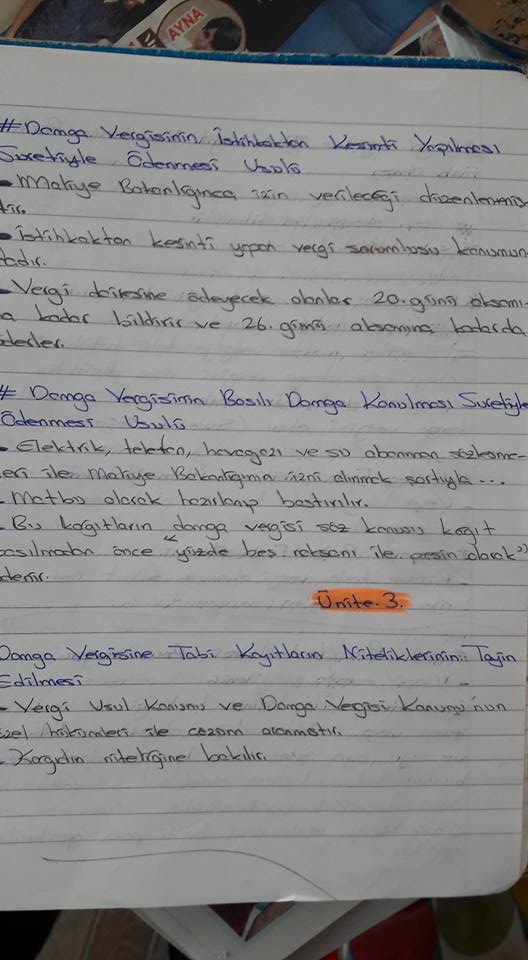 AYNA
# Damga Vergisinin İstihkaktan Kesinti Yapılması
Suretiyle Ödenmesi Usulü
- Maliye Bakanlığınca izin verileceği düzenlenmiş
tir.
- İstihkaktan kesinti yapan vergi sorumlusu konumun
dadır.
- Vergi dairesine ödeyecek olanlar 20. günü akşamı
a kadar bildirir ve 26. günü akşamına kadarda
öderler.
# Damga Vergisinin Basılı Damga Konulması Suretiyle
Ödenmesi Usulü
- Elektrik, telefon, havagazı ve su abonman sözleşme-
leri ile Maliye Bakanlığına izni almak şartıyla ...
- Matbu olarak hazırlanıp bastırılır.
- Bu kağıtların damga vegisi söz konusu kağıt
basılmadan önce "yüzde beş noksanı ile peşin olarak"
ödenir.
Ünite.3.
Damga Vergisine Tabi Kağıtların Niteliklerinin Tayin
Edilmesi
- Vergi Usul Kanunu ve Damga Vergisi Kanunu'nun
özel hükümleri ile çözüm aranmıştır.
- Kağıdın niteliğine bakılır.